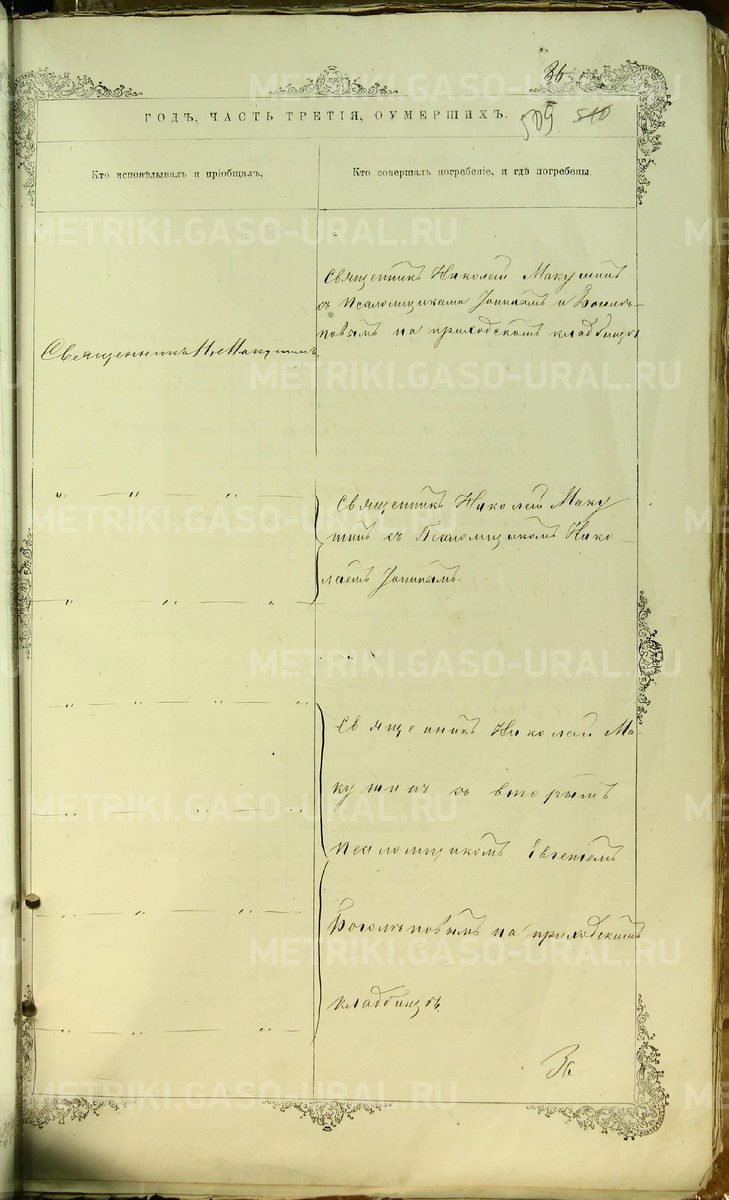 36
ГОДЪ, ЧАСТЬ ТРЕТІЯ, ОУМЕРШИХЪ.
509 510
Кто исповѣдывалъ и пріобщалъ.
Кто совершалъ погребеніе, и гдѣ погребены.
Священникъ Н. Макушинъ
Священникъ Николай Макушинъ
съ Псаломщиками и
на приходскомъ кладбищѣ
" " " "
Священникъ Николай Маку
шинъ съ Псаломщикомъ Нико-
лаемъ
" " " "
" " " "
Священникъ Николай Ма-
кушинъ съ вторымъ
" " " "
псаломщикомъ Евгеніемъ
" " "
на приходскомъ
кладбищѣ.
" " "
METRIKI.GASO-URAL.RU